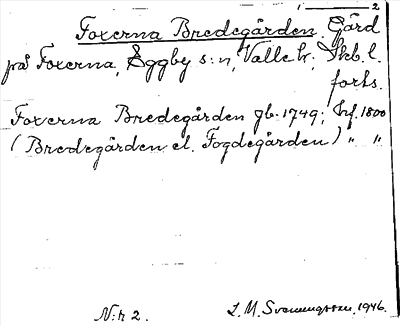 1 — 2
Foxerna Bredegården. Gård
på Foxerna, Eggby s:n, Valle hr; Skb. l.
forts.
Foxerna Bredegården gb. 1749; Hf. 1800
(Bredegården el. Fogdegården) " "
N:r 2. L. M. Svenungsson, 1946.